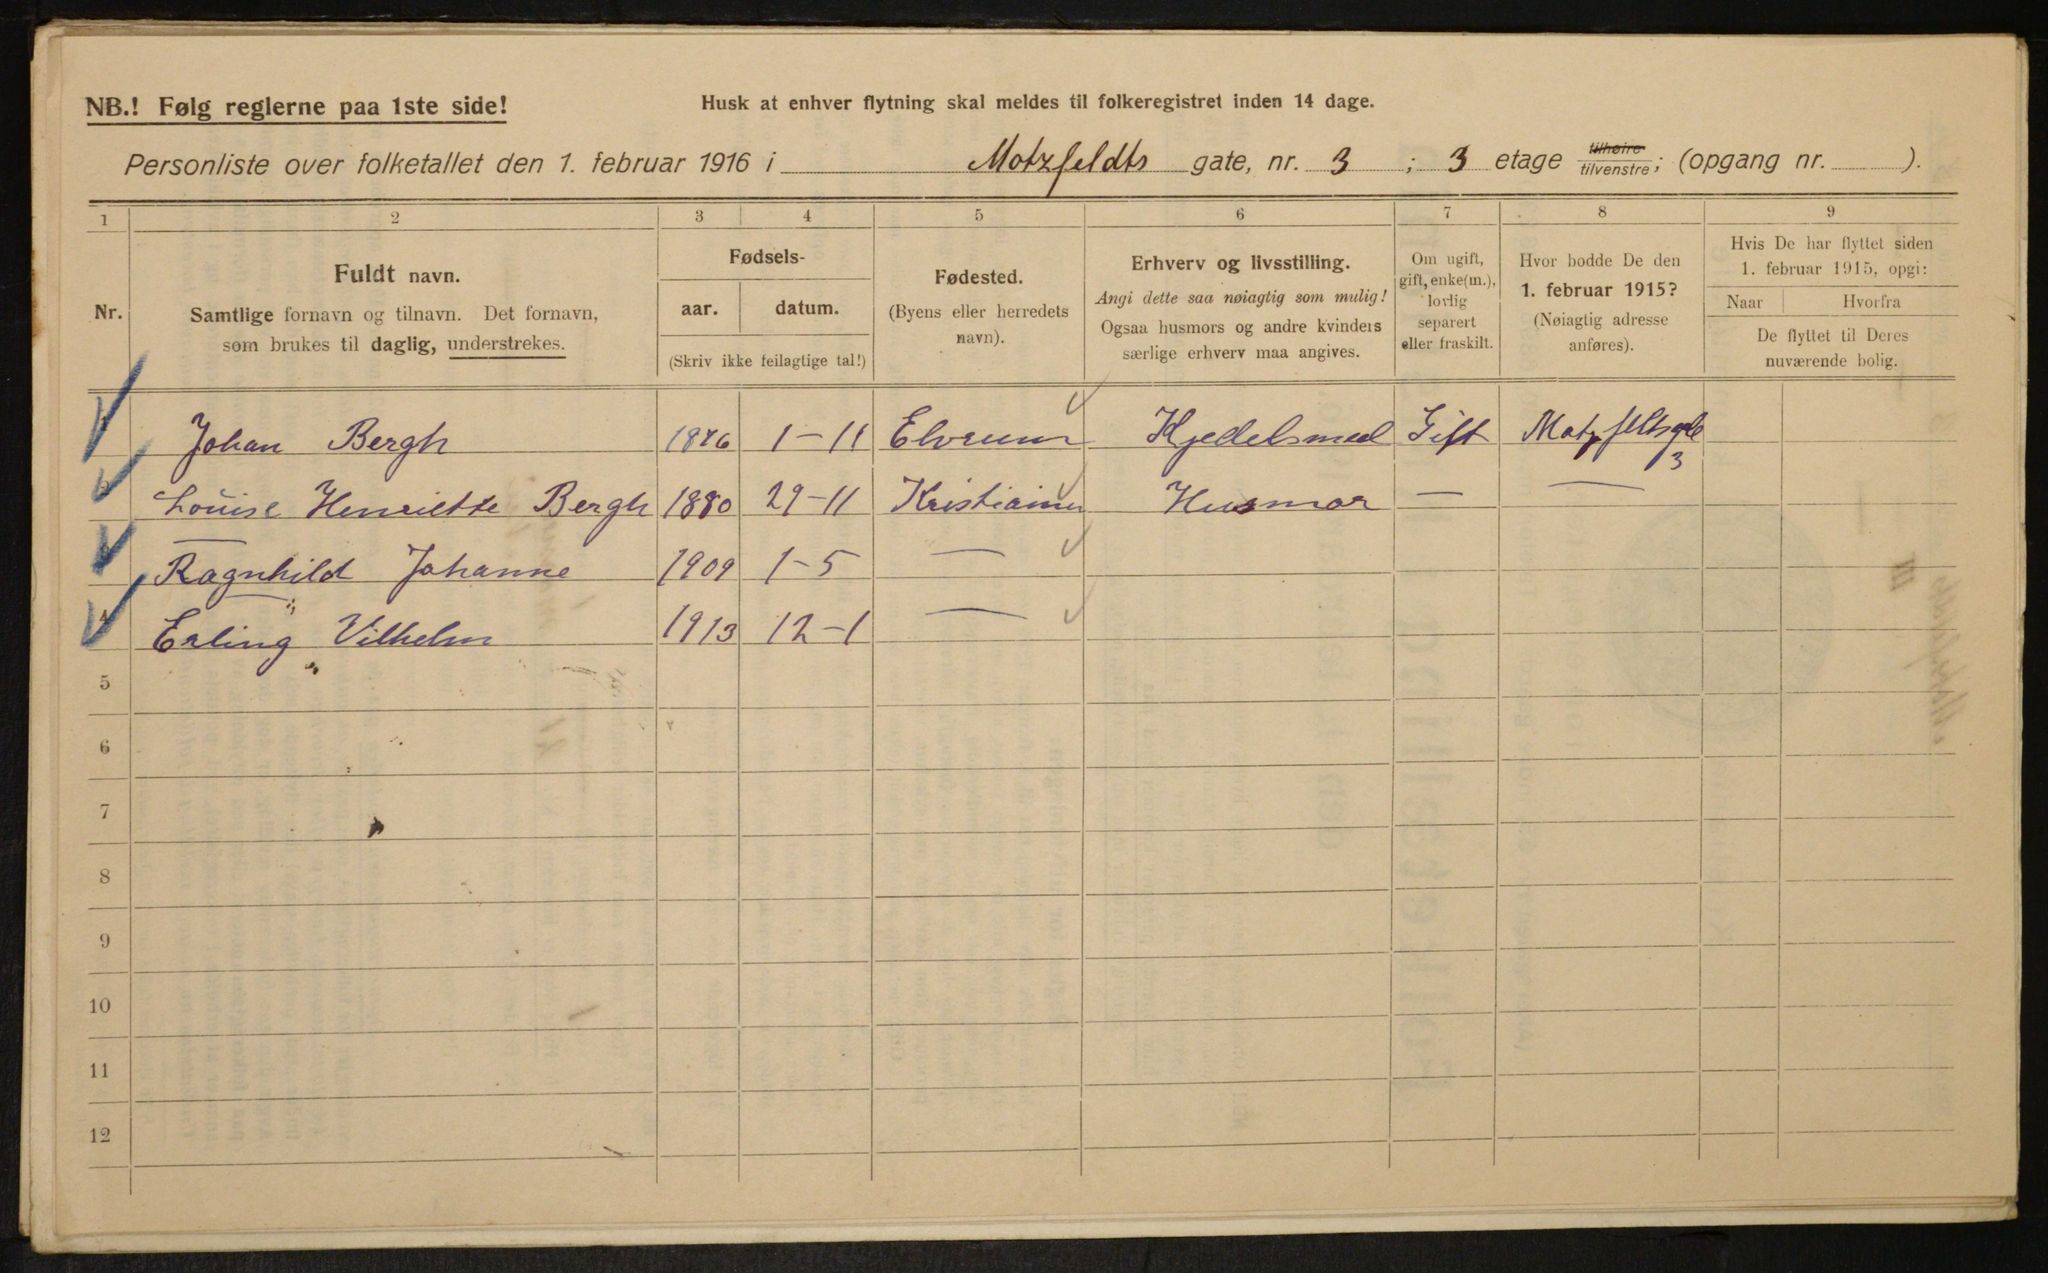 NB.! Følg reglerne paa 1ste side!
Husk at enhver flytning skal meldes til folkeregistret inden 14 dage.
Personliste over folketallet den 1. februar 1916 i Motzfeldts gate, nr. 3 ; 3 etage tilhøire/tilvenstre; (opgang nr. ).
1 2 3 4 5 6 7 8 9
Nr.
Fuldt navn.
Samtlige fornavn og tilnavn. Det fornavn,
som brukes til daglig, understrekes.
Fødsels-
aar. datum.
(Skriv ikke feilagtige tal!)
Fødested.
(Byens eller herredets
navn).
Erhverv og livsstilling.
Angi dette saa nøiagtig som mulig!
Ogsaa husmors og andre kvinders
særlige erhverv maa angives.
Om ugift,
gift, enke(m.),
lovlig
separert
eller fraskilt.
Hvor bodde De den
1. februar 1915?
(Nøiagtig adresse
anføres).
Hvis De har flyttet siden
1. februar 1915, opgi:
Naar Hvorfra
De flyttet til Deres
nuværende bolig.
Johan Bergh 1876 1-11 Elvrum Kjedelsmed Gift Motzfeltsgde
3
Louise Henriette Bergh 1880 29-11 Kristiania Husmor — —
Ragnhild Johanne 1909 1-5 —
"
4 Erling Vilhelm 1913 12-1 —
"
5
6
7
8
9
10
11
12